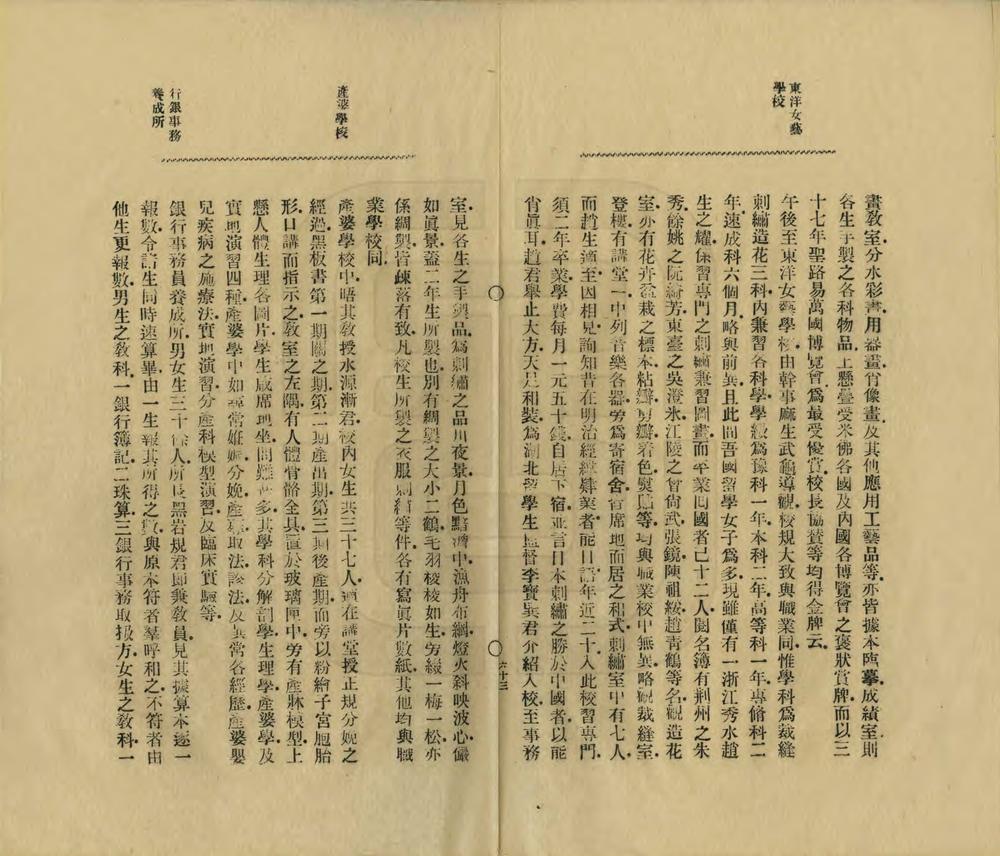 東洋女藝
學校
畫教室分水彩畫用器畫肖像畫及其他應用工藝品等亦皆據本臨摹成績室則
各生手製之各科物品上懸疊受米佛各國及內國各博覽會之褒狀賞牌而以三
十七年聖路易萬國博覽會爲最受優賞校長協賛等均得金牌云
午後至東洋女藝學校由幹事麻生武龜導觀校規大致與職業同惟學科爲裁縫
刺繡造花三科內兼習各科學學級爲豫科一年本科二年高等科一年專脩科二
年速成科六個月略與前異且此間吾國留學女子爲多現雖僅有一浙江秀水趙
生之耀係習專門之刺繡兼習圖畫而卒業回國者已十二人閱名簿有荆州之朱
秀餘姚之阮綺芳東臺之吳澄氷江陵之曾尙武張鏡陳祖綏趙青鶴等名觀造花
室亦有花卉盆栽之標本粘瓣剪瓣着色熨 等均與職業校中無異略觀裁縫室
登樓有講堂一中列音樂各器旁爲寄宿舍皆席地而居之和式刺繡室中有七人
而趙生適至因相見詢知昔在明治經緯肄業者能日語年近二十入此校習專門
須二年卒業學費每月一元五十錢自居下宿並言日本刺繡之勝於中國者以能
肖眞耳趙君舉止大方天足和裝爲湖北留學生監督李寶巽君介紹入校至事務
六十三
室見各生之手製品爲刺繡之品川夜景月色黯澹中漁舟布網燈火斜映波心儼
如眞景蓋二年生所製也別有綢製之大小二鶴毛羽稜稜如生旁綴一梅一松亦
係綢製皆疎落有致凡校生所製之衣服刺繡等件各有寫眞片數紙其他均與職
業學校同
產婆學校
產婆學校中晤其敎授水源漸君校內女生共三十七人適在講堂授正規分娩之
經過黑板書第一期開之期第二期產出期第三期後產期而旁以粉繪子宮胞胎
形口講而指示之教室之左隅有人體骨骼全具置於玻璃匣中旁有產牀模型上
懸人體生理各圖片學生咸席地坐問難甚多其學科分解剖學生理學產婆學及
實地演習四種產婆學中如尋常姙娠分娩產 取法該法及異常各經歷產婆嬰
兒疾病之施療法實地演習分產科模型演習及臨床實驗等
行銀事務
養成所
銀行事務員養成所男女生三十餘人所長黑岩規君即兼敎員見其據算本逐一
報數令諸生同時速算畢由一生報其所得之數與原本符者羣呼和之不符者由
他生更報數男生之敎科一銀行簿記二珠算三銀行事務取扱方女生之敎科一